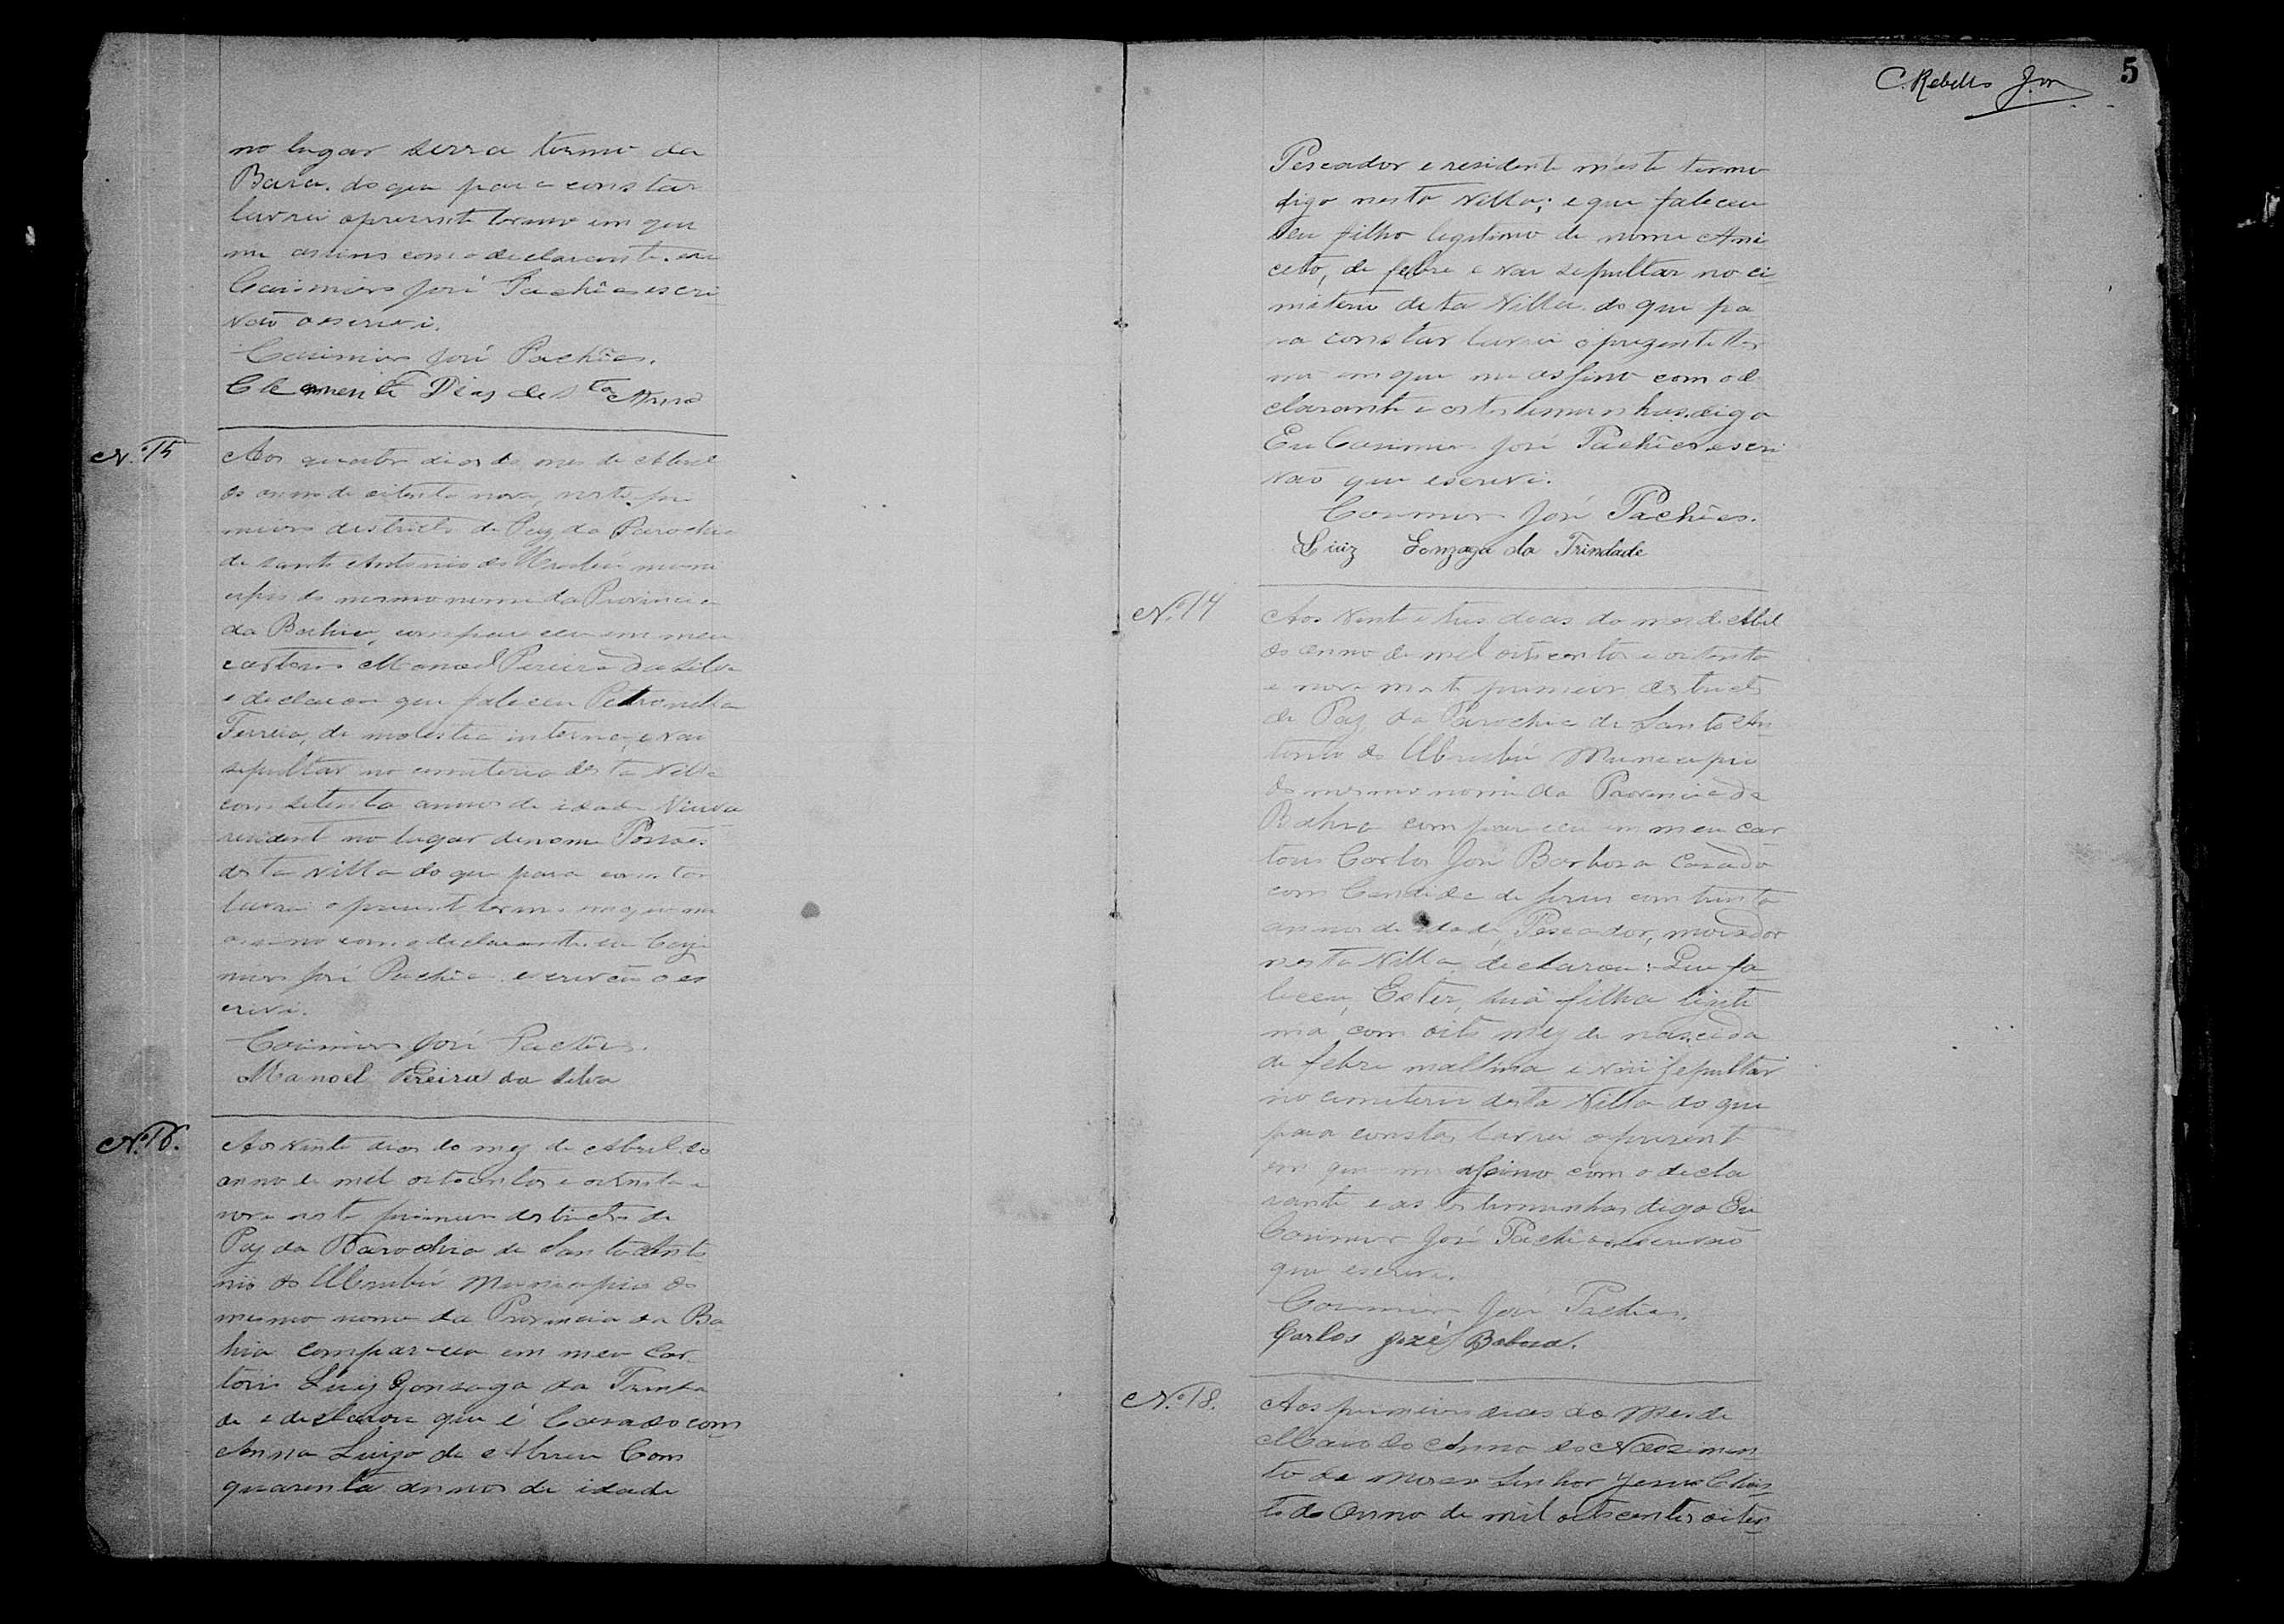 no lugar serra termo da
Bara. do que para constar
lavrei o presente termo em que
me assino com o declarante. eu
Casimiro José Pachêco escri
vão o escrevi.
Casimiro José Pachêco.
Clemente Dias de Sta Anna
N.º 15
Aos quatro dias do mes de Abril
do anno de oitenta nove, neste pri
meiro districto de Paz da Parochia
de Santo Antonio do Urubú muni
cipio do mesmo nome da Provincia
da Bahia, compareceu em meu
cartorio Manoel Pereira da Silva
e declarou que faleceu Petronilha
Ferreira, de molestia interna, e vai
sepultar no cemiterio desta Villa
com setenta annos de idade Viuva
residente no lugar denome
desta Villa do que para constar
lavrei o present termo em que me
assino com o declarante. eu Cazi
miro José Pachêco escrivão o es
crevi.
Casimiro José Pachêco.
Manoel Pereira da Silva
N.º 16.
Aos vinte dias do mez de Abril do
anno de mil oitocentos e oitenta e
nove neste primeiro destricto de
Paz da Parochia de Santo Anto
nio do Urubú Municipio do
mesmo nome da Provincia da Ba
hia compareceu em meu Car
torio Luiz Gonzaga da Trinda
de e declarou que é Casado com
Anna Luiza de Abreu Com
quarenta annos de idade
C. Rebello Jor
5
Pescador e residente n'este termo
digo nesta Villa; e que faleceu
seu filho legitimo de nome Ani
ceto, de febre e vai sepultar no ci
miterio desta Villa. do que pa
ra constar lavrei o prezente ter
mo em que me assino com o de
clarante e as testemunhas. digo
Eu Casimiro José Pachêco escri
vão que escrevi.
Casimiro José Pachêco.
Luiz Gonzaga da Trindade
N.º 14
Aos vinte e tres dias do mes de Abril
do anno de mil oitocentos e oitenta
e nove neste primeiro destricto
de Paz da Parochia de Santo An
tonio do Urubú Municipio
do mesmo nome da Provincia da
Bahia compareceu em meu car
torio Carlos José Barboza Casado
com Candida de Jesus com trinta
annos de idade, Pescador, morador
nesta Villa declarou: Que fa
leceu, Ester, sua filha ligiti
ma, com oito mez de nascida
de febre mallina e vai sepultar
no cemiterio desta Villa do que
para constar lavrei o present
em que me assino com o decla
rante e as testemunhas digo Eu
Casimiro José Pachêco escrivão
que escrevi.
Casimiro José Pachêco.
Carlos Jozé Baboza.
N.º 18.
Aos primeiro dias do Mes de
Maio do Anno do Nascimen
to de nosso Senhor Jesus Chris
to do Anno de mil oitocentos oiten